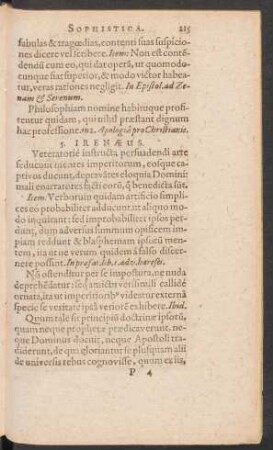 SOPHISTICA. 215
fabulas & tragœdias, contenti suas suspicio-
nes dicere vel scribere. Item: Non est conté-
dendū cum eo, qui dat operā, ut quomodo-
cunque siat superior, & modo victor habea-
tur, veras rationes negligit. In Epistol. ad Ze-
nam & Serenum.
Philosophiam nomine habituque profi-
tentur quidam, qui nihil præstant dignum
hac professione. in 2. Apologiā pro Christianis.
5. IRENÆUS.
Veteratoriè instructa persuadendi arte
seducunt mentes imperitorum, eosque ca-
ptivos ducunt, depravātes eloquia Domini:
mali enarratores facti eorū, q̃ benedicta sūt.
Item: Verborum quidam artificio simpli-
ces eò probabiliter adducunt, ut aliquo mo-
do inquirant: sed improbabiliter ipsos per-
dunt, dum adversus summum opificem im-
piam reddunt & blasphemam ipsorū men-
tem, ita ut ne verum quidem à falso disce-
nere possint. In præfat. lib. 1. adv. hæreses.
Nō ostenditur per se impostura, ne nuda
deprehēdatur: sed amictu verisimili callidè
ornata, ita ut imperitiorib' videatur externâ
specie se veritate ipsâ veriorē exhibere. Ibid.
Quum tale sit principiū doctrinæ ipsorū,
quam neque prophetæ prædicaverunt, ne-
que Dominus docuit, neque Apostoli tra-
diderunt, de qua gloriantur se plusquam alii
de universis rebus cognovisse, quum ex iis,
P 4